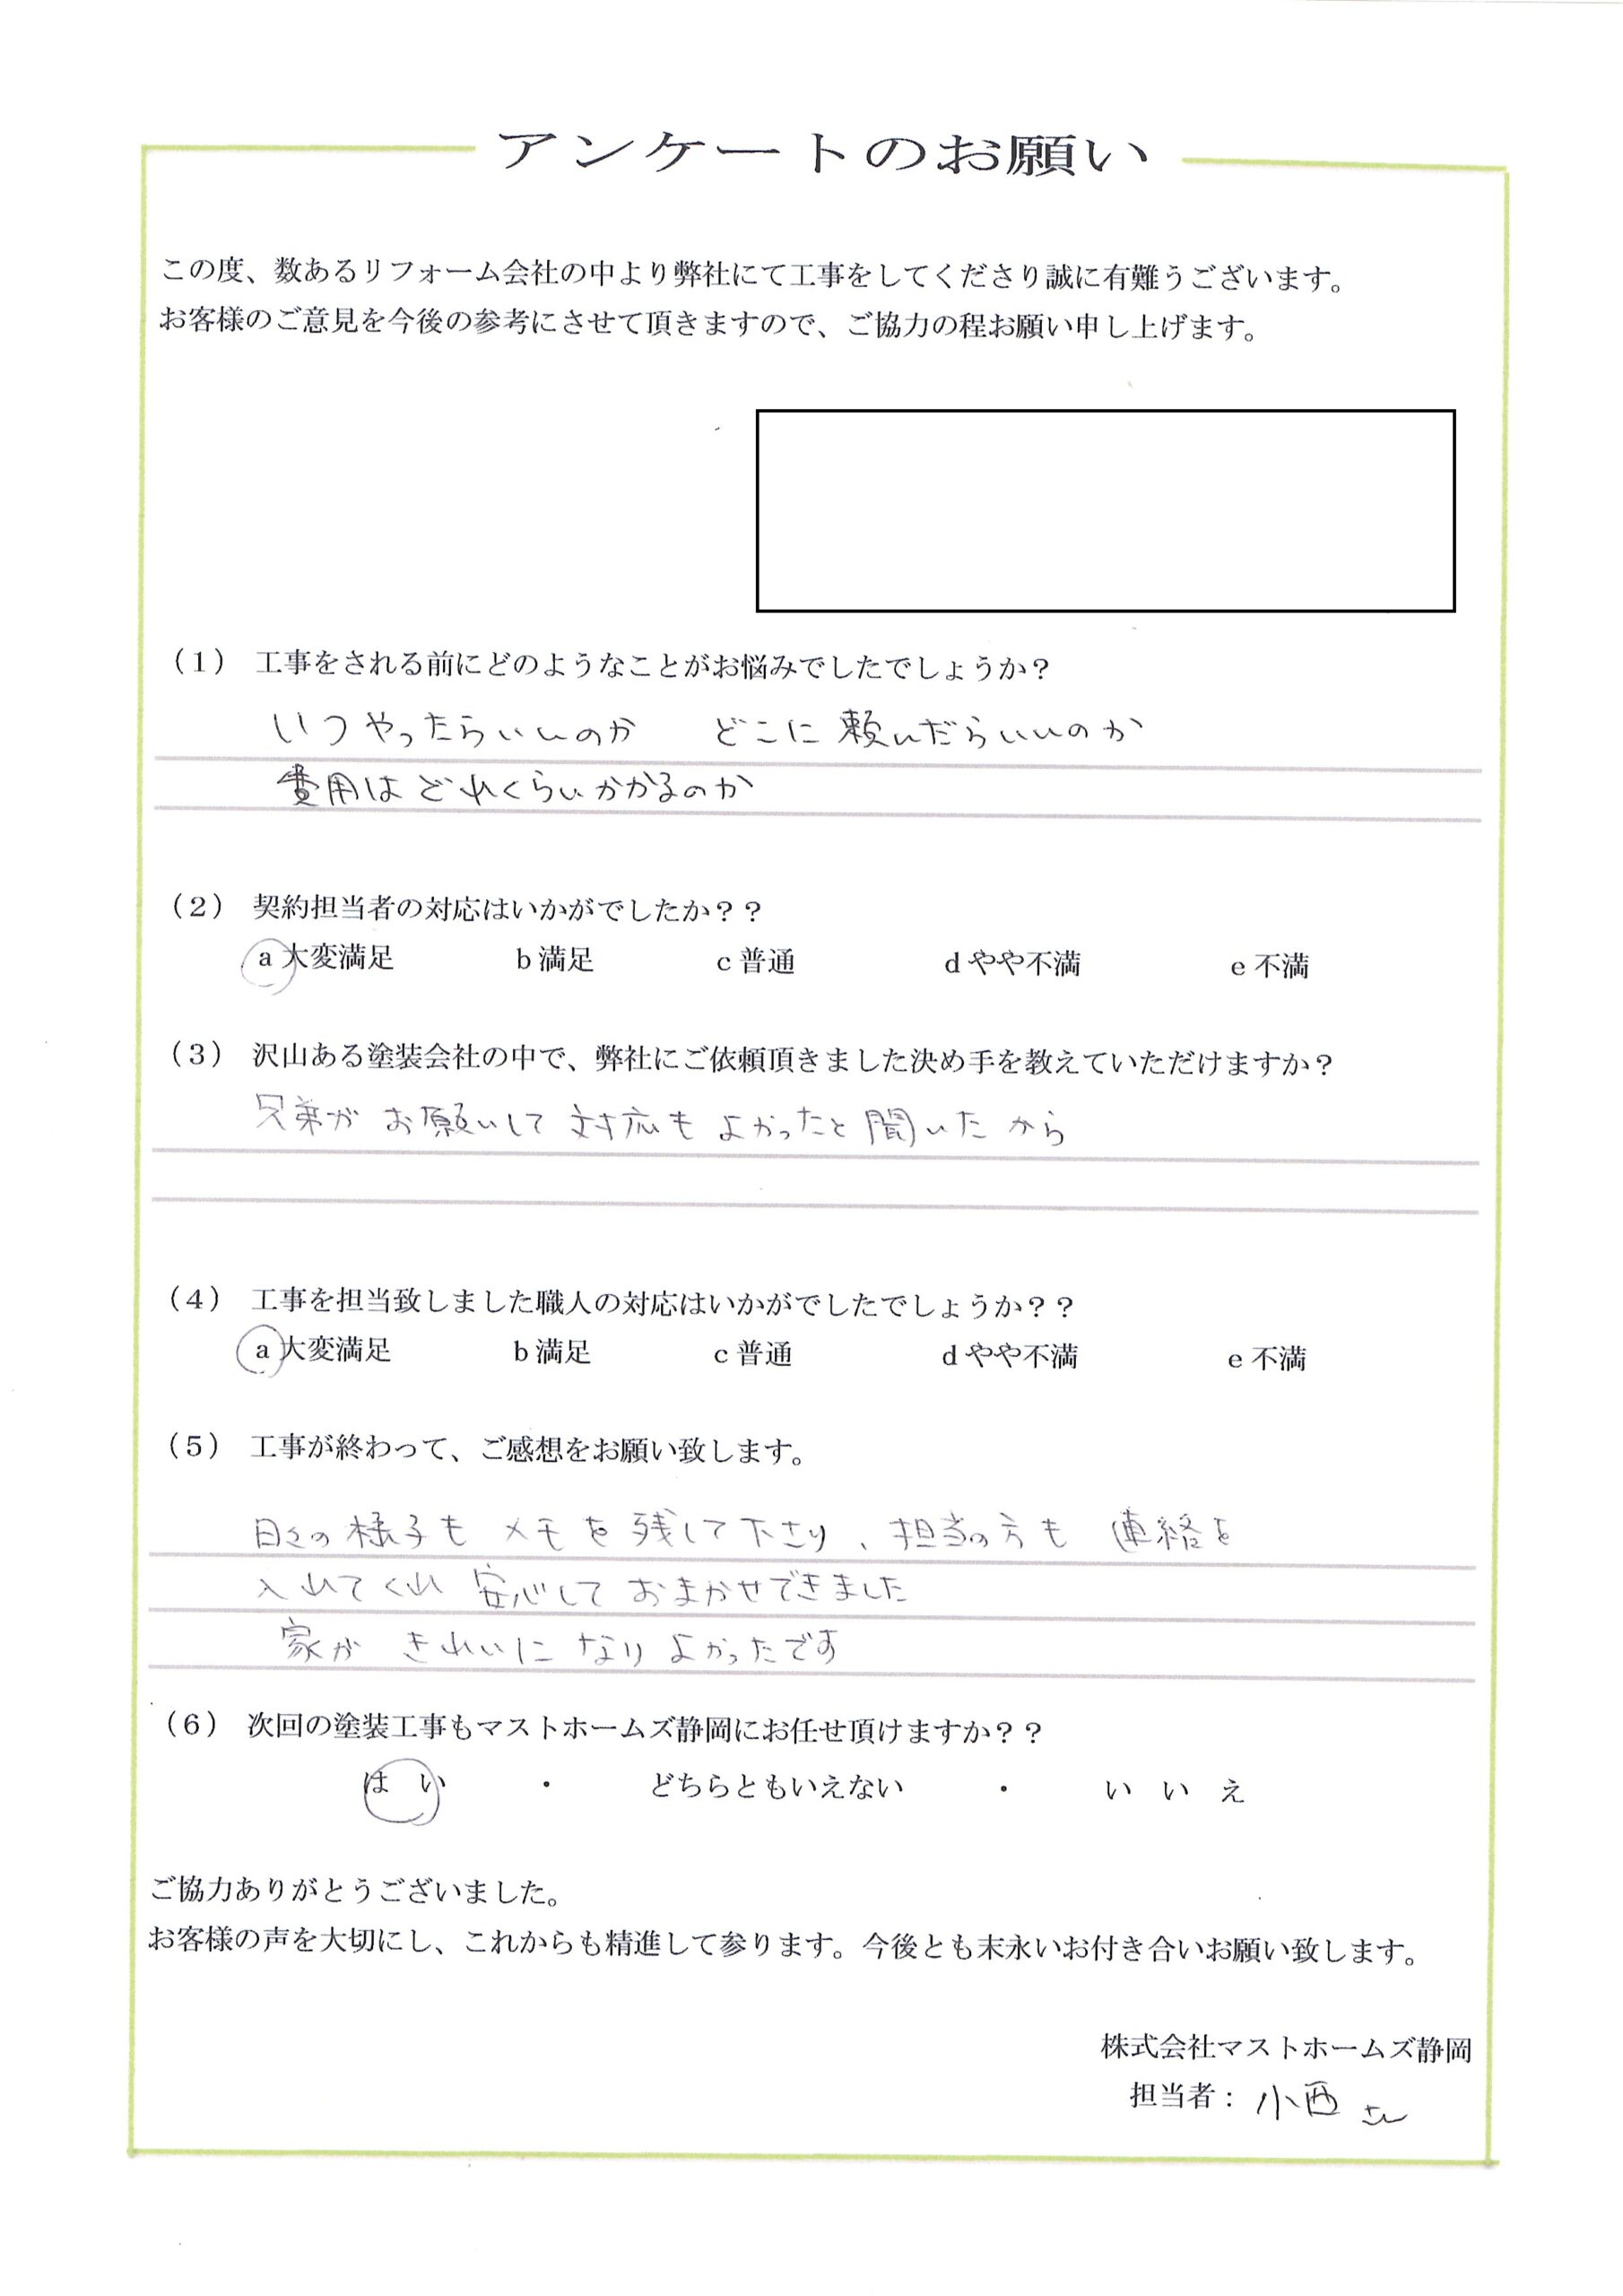 アンケートのお願い
この度、数あるリフォーム会社の中より弊社にて工事をしてくださり誠に有難うございます。
お客様のご意見を今後の参考にさせて頂きますので、ご協力の程お願い申し上げます。
（1） 工事をされる前にどのようなことがお悩みでしたでしょうか？
いつやったらいいのか どこに頼んだらいいのか
費用はどれくらいかかるのか
（2） 契約担当者の対応はいかがでしたか？？
a 大変満足 b 満足 c 普通 d やや不満 e 不満
（3） 沢山ある塗装会社の中で、弊社にご依頼頂きました決め手を教えていただけますか？
兄弟がお願いして対応もよかったと聞いたから
（4） 工事を担当致しました職人の対応はいかがでしたでしょうか？？
a 大変満足 b 満足 c 普通 d やや不満 e 不満
（5） 工事が終わって、ご感想をお願い致します。
日々の様子もメモを残して下さり、担当の方も連絡を
入れてくれ 安心しておまかせできました
家がきれいになりよかったです
（6） 次回の塗装工事もマストホームズ静岡にお任せ頂けますか？？
はい ・ どちらともいえない ・ いいえ
ご協力ありがとうございました。
お客様の声を大切にし、これからも精進して参ります。今後とも末永いお付き合いお願い致します。
株式会社マストホームズ静岡
担当者：小西さん